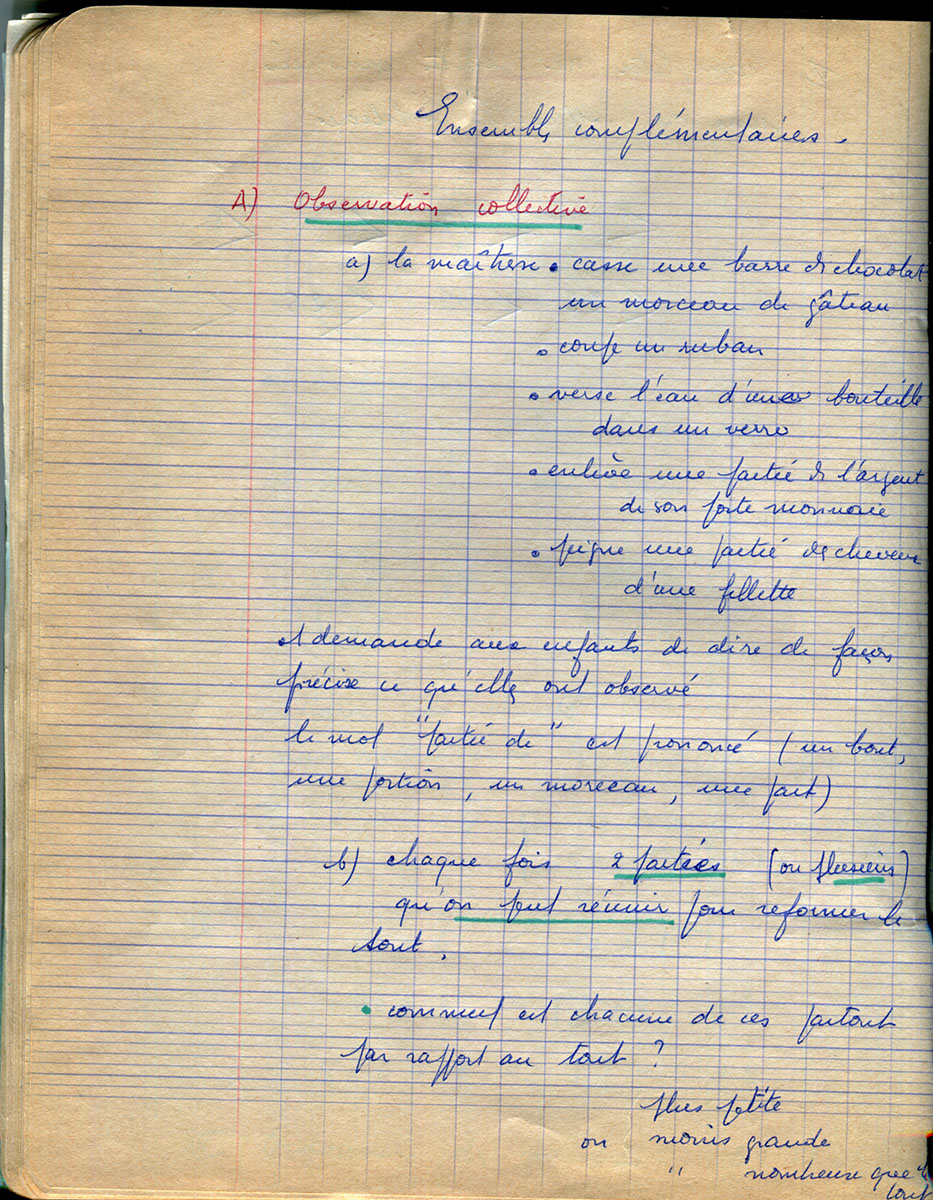 Ensembles complémentaires.
A) Observation collective
a) la maîtresse • casse une barre de chocolat
un morceau de gâteau
• coupe un ruban
• verse l'eau d'une bouteille
dans un verre
• enlève une partie de l'argent
de son porte monnaie
• peigne une partie des cheveux
d'une fillette
et demande aux enfants de dire de façon
précise ce qu'elles ont observé
le mot "partie de" est prononcé (un bout,
une portion, un morceau, une part)
b) chaque fois 2 parties (ou plusieurs)
qu'on peut réunir pour reformer le
tout.
• comment est chacune de ces
par rapport au tout ?
plus petite
ou moins grande
" nombreuse que le
tout